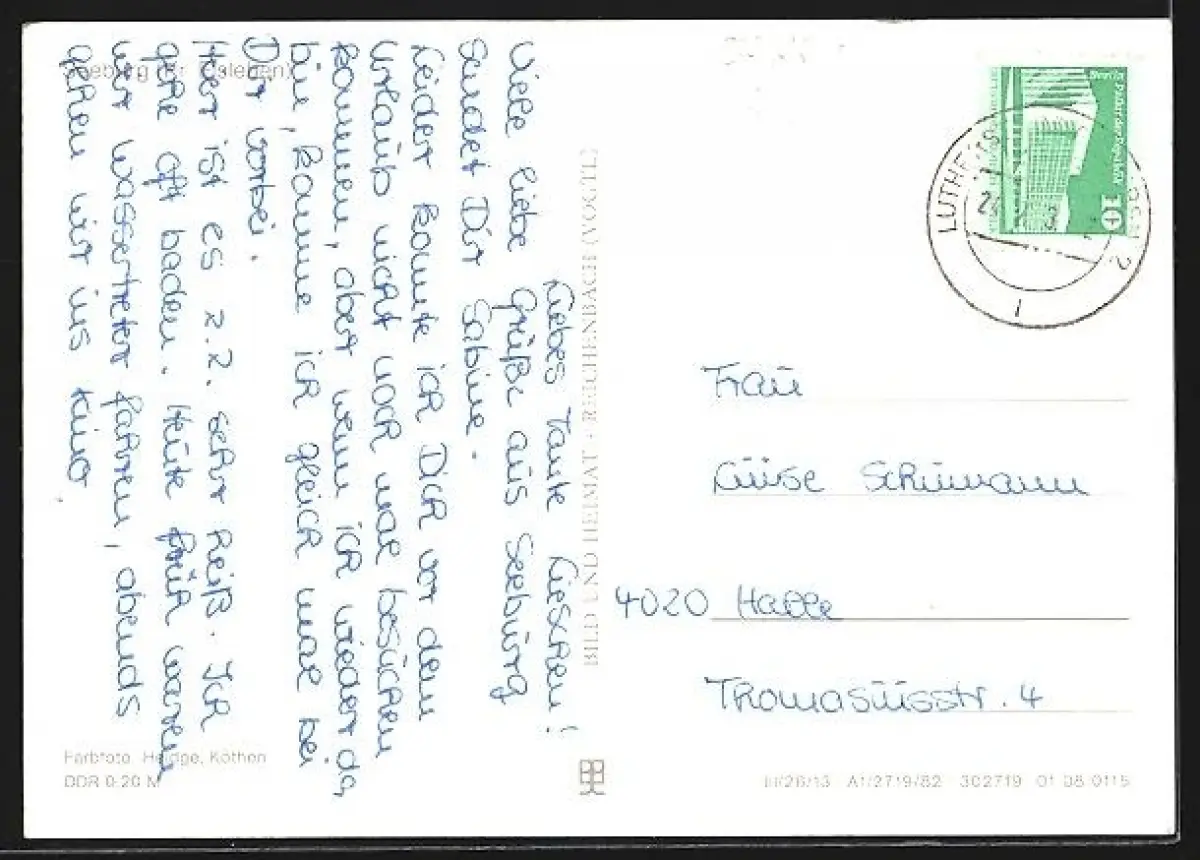 Seeburg (Kr. Eisleben)
Liebes Tante Lieschen!
Viele liebe Grüße aus Seeburg
sendet Dir Sabine.
Leider konnte ich Dich vor dem
Urlaub nicht noch mal besuchen
kommen, aber wenn ich wieder da
bin, komme ich gleich mal bei
Dir vorbei.
Hier ist es z.Z. sehr heiß. Ich
gehe oft baden. Heute früh waren
wir Wassertreter fahren, abends
gehen wir ins Kino.
Farbfoto: Heidge, Köthen
DDR 0.20 M
BILD UND HEIMAT · REICHENBACH (VOGTL)
Berlin Palast der Republik
10
LUTHE
2
1
Frau
Luise Schumann
4020 Halle
Thomasiusstr. 4
III/26/13 A1/2719/82 302719 01 08 0115